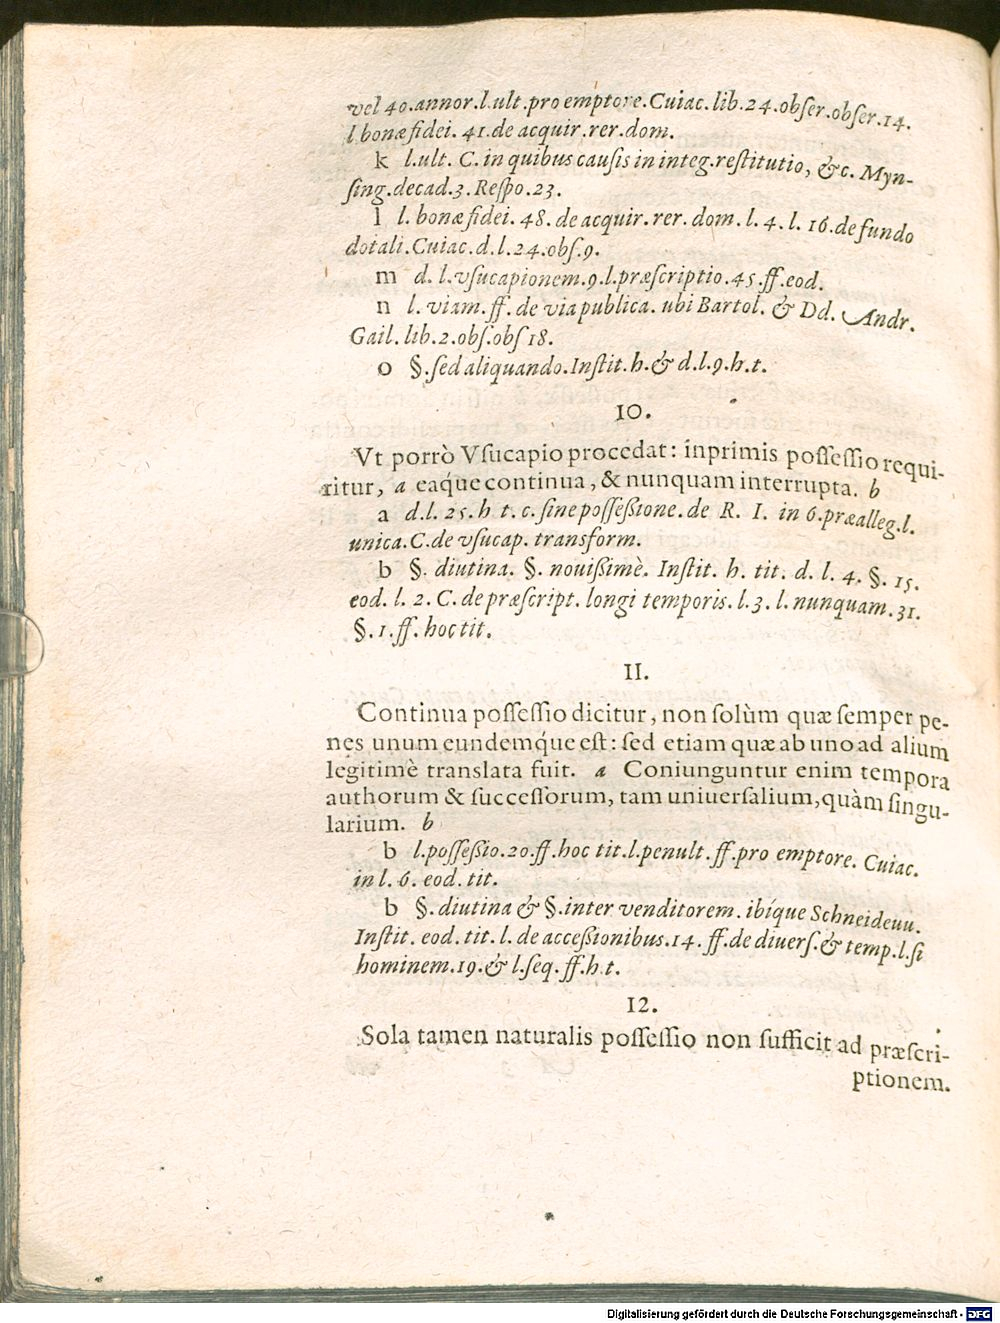 vel 40. annor. l. ult. pro emptore. Cuiac. lib. 24. obser. obser. 14.
l bonæ fidei. 41. de acquir. rer. dom.
k l. ult. C. in quibus causis in integ. restitutio, &c. Myn-
sing. decad. 3. Respo. 23.
l l. bonæ fidei. 48. de acquir. rer. dom. l. 4. l. 16. de fundo
dotali. Cuiac. d. l. 24. obs. 9.
m d. l. vsucapionem. 9. l. præscriptio. 45. ff. eod.
n l. viam. ff. de via publica. ubi Bartol. & Dd. Andr.
Gail. lib. 2. obs. obs 18.
o §. sed aliquando. Instit. h. & d. l. 9. h. t.
10.
Vt porrò Vsucapio procedat: inprimis possessio requi-
ritur, a eaq́ue continua, & nunquam interrupta. b
a d. l. 25. h t. c. sine possessione. de R. I. in 6. præalleg. l.
unica. C. de vsucap. transform.
b §. diutina. §. nouissimè. Instit. h. tit. d. l. 4. §. 15.
eod. l. 2. C. de præscript. longi temporis. l. 3. l. nunquam. 31.
§. 1. ff. hoc tit.
11.
Continua possessio dicitur, non solùm quæ semper pe-
nes unum eundemq́ue est: sed etiam quæ ab uno ad alium
legitimè translata fuit. a Coniunguntur enim tempora
authorum & successorum, tam uniuersalium, quàm singu-
larium. b
b l. possessio. 20. ff. hoc tit. l. penult. ff. pro emptore. Cuiac.
in l. 6. eod. tit.
b §. diutina & §. inter venditorem. ibíque Schneideuu.
Instit. eod. tit. l. de accessionibus. 14. ff. de diuers. & temp. l. si
hominem. 19. & l. seq. ff. h. t.
12.
Sola tamen naturalis possessio non sufficit ad præscri-
ptionem.
Digitalisierung gefördert durch die Deutsche Forschungsgemeinschaft - DFG